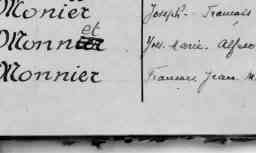 Monier Joseph - Francois
Monnet Jos. Marie. Alfred
Monnier Francois Jean M.